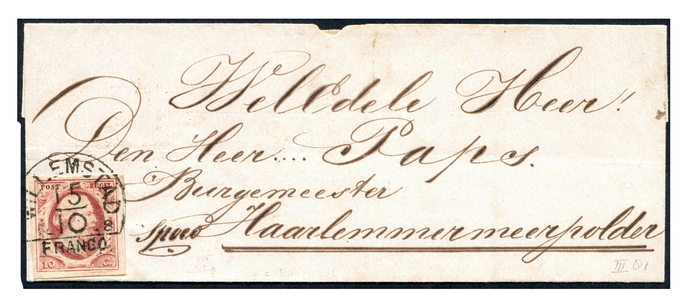 WelEdele Heer!
Den Heer.... Paps.
Burgemeester
Spoed Haarlemmermeerpolder
WILLEMSTAD
15
10
8
FRANCO
POST ZEGEL
10 C.
III